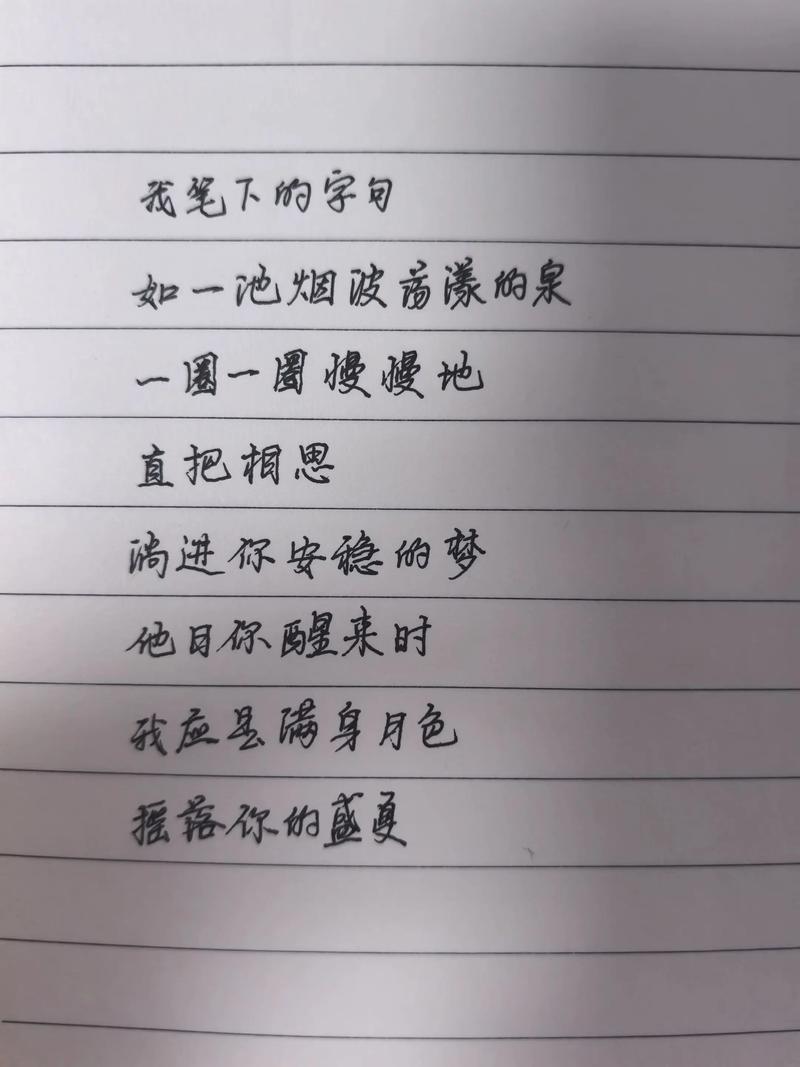 我笔下的字句
如一池烟波荡漾的泉
一圈一圈慢慢地
直把相思
淌进你安稳的梦
他日你醒来时
我应是满身月色
摇落你的盛夏